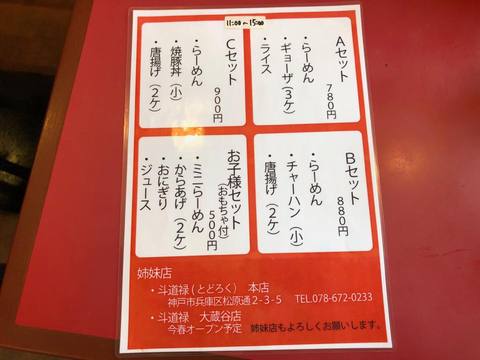 11:00～15:00
Aセット
780円
・らーめん
・ギョーザ(3ケ)
・ライス
Cセット
900円
・らーめん
・焼豚丼(小)
・唐揚げ(2ケ)
Bセット
880円
・らーめん
・チャーハン(小)
・唐揚げ(2ケ)
お子様セット
(おもちゃ付)
500円
・ミニらーめん
・からあげ(2ケ)
・おにぎり
・ジュース
姉妹店
・斗道禄(とどろく) 本店
神戸市兵庫区松原通2-3-5 TEL.078-672-0233
・斗道禄 大蔵谷店
今春オープン予定 姉妹店もよろしくお願いします。